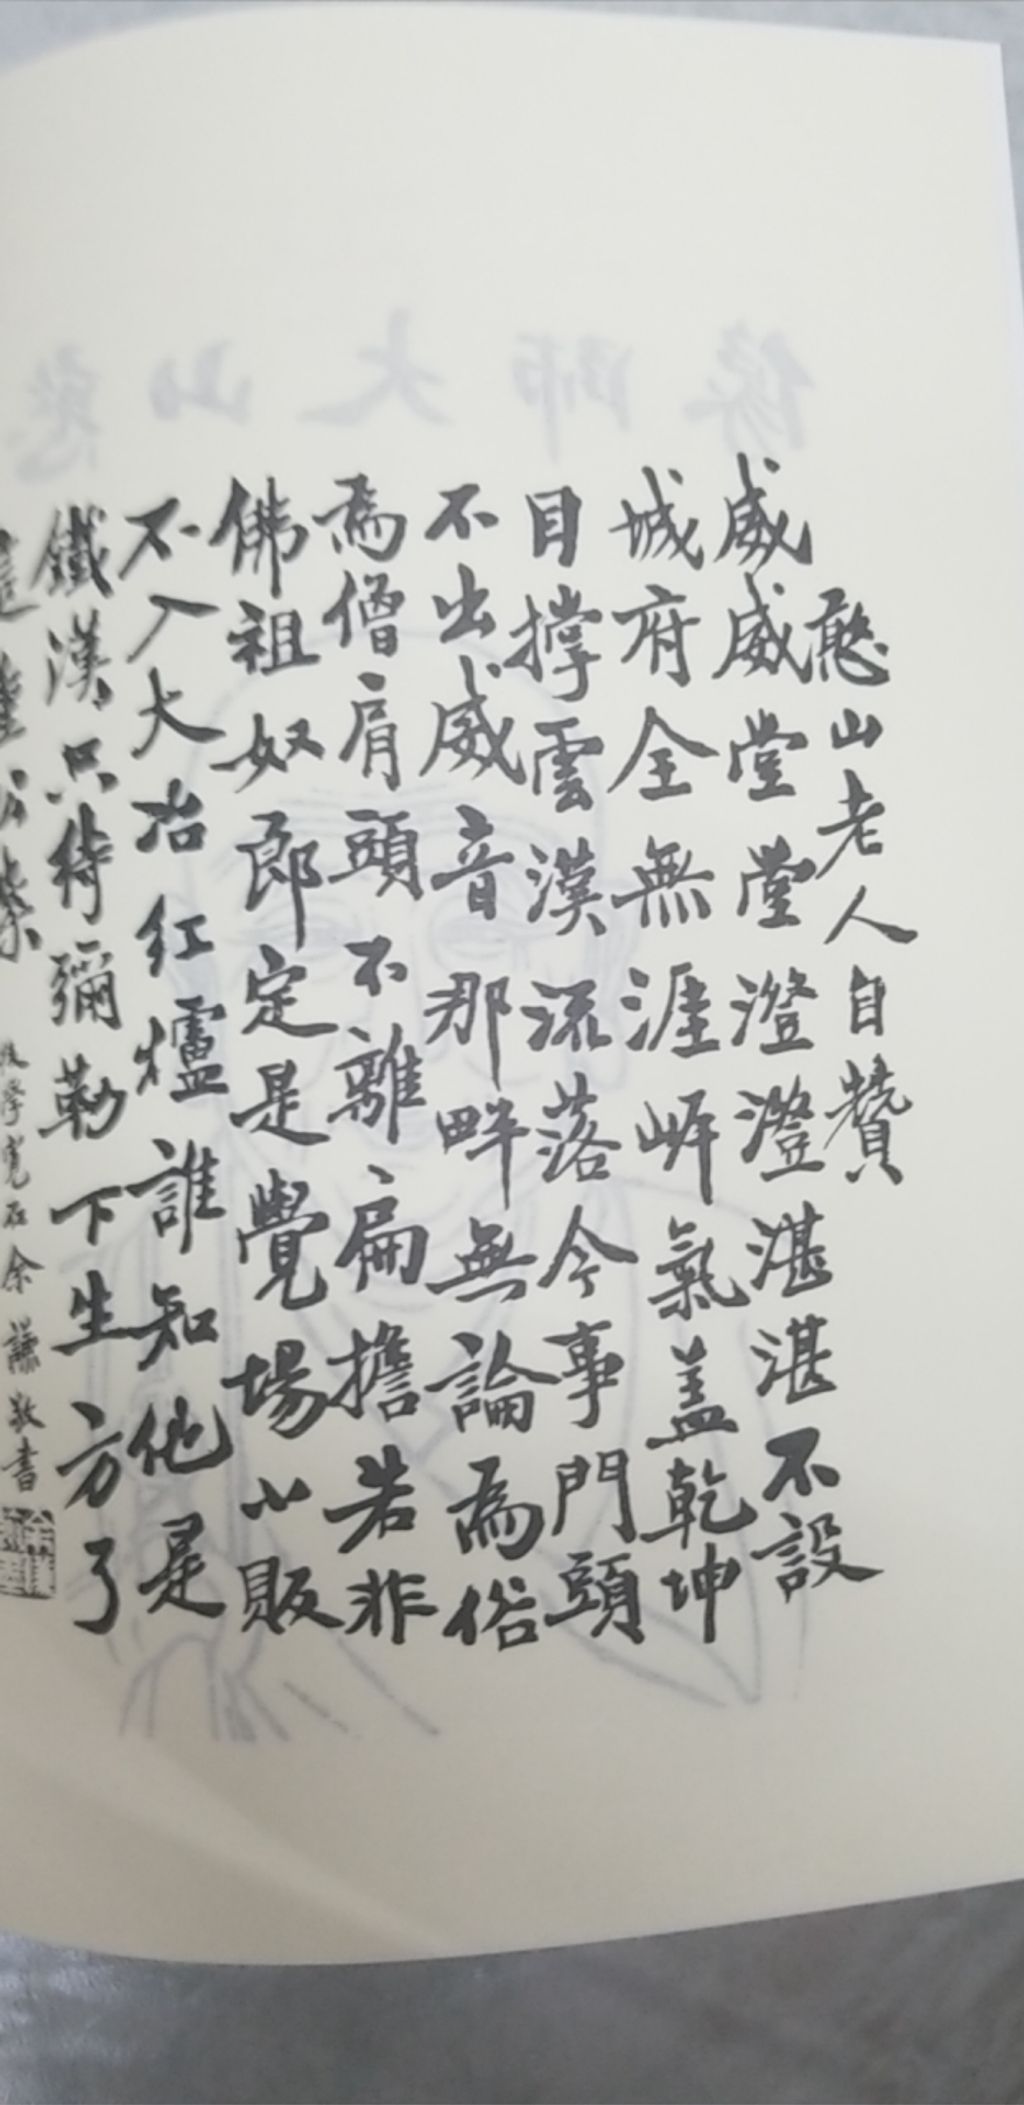 憨山老人自贊
威威堂堂澄澄湛湛不設
城府全無涯岸氣蓋乾坤
目撐雲漢流落今事門頭
不出威音那畔無論為俗
為僧肩頭不離扁擔若非
佛祖奴郎定是覺場小販
不入大冶紅爐誰知他是
鐵漢只待彌勒下生方了
余謙敬書
憨山大師像